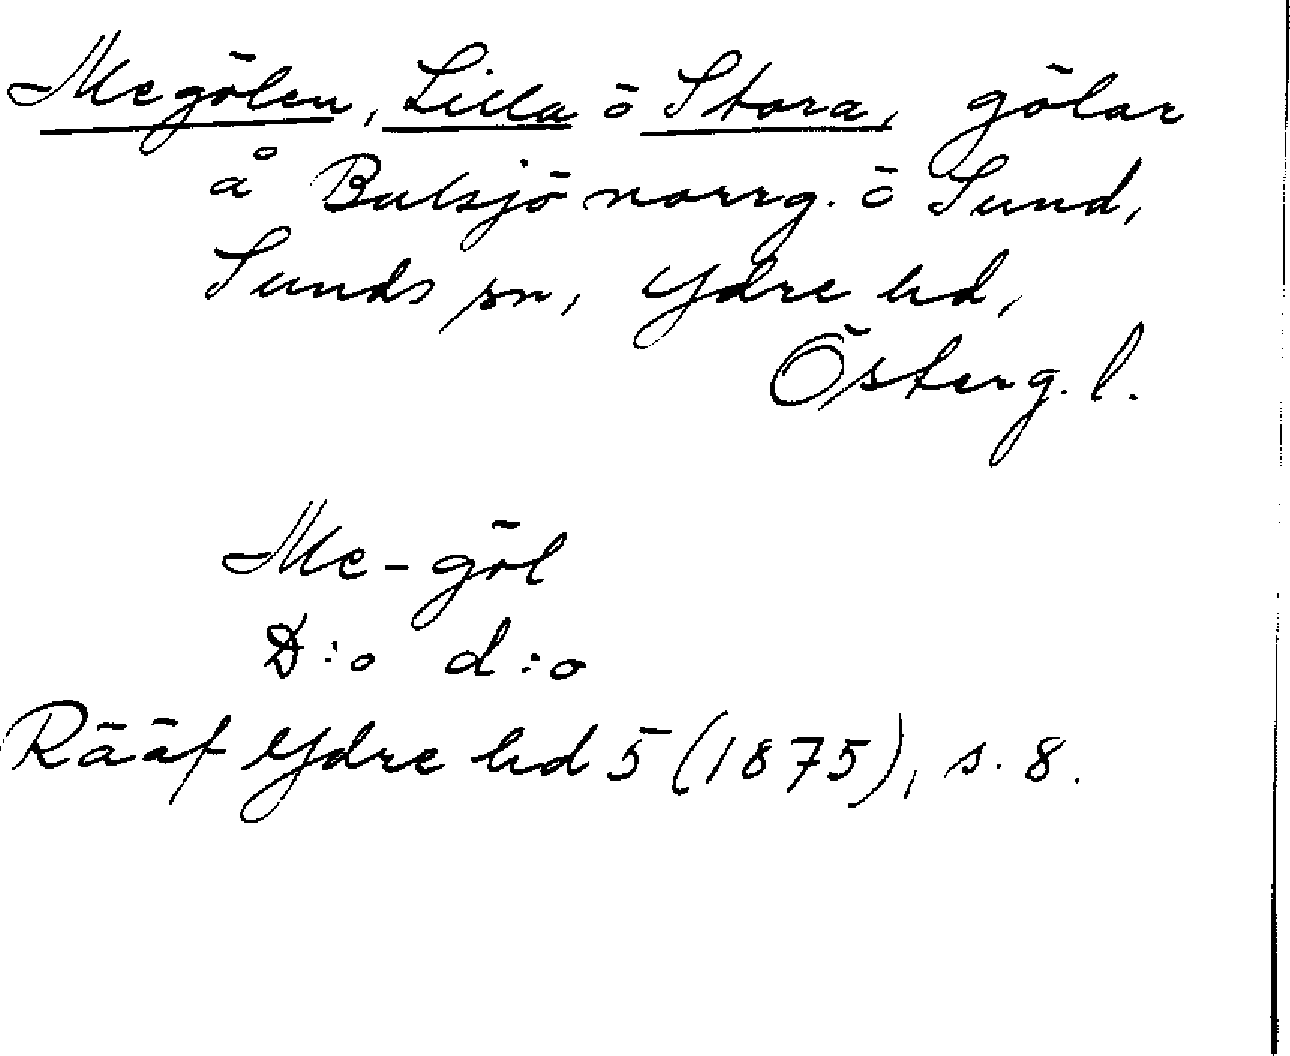 Megölen, Lilla ö Stora, gölar
å Bulsjö norrg. ö Sund,
Sunds sn, Ydre hd,
Österg. l.
Me-göl
D:o d:o
Rääf Ydre hd 5 (1875), s. 8.